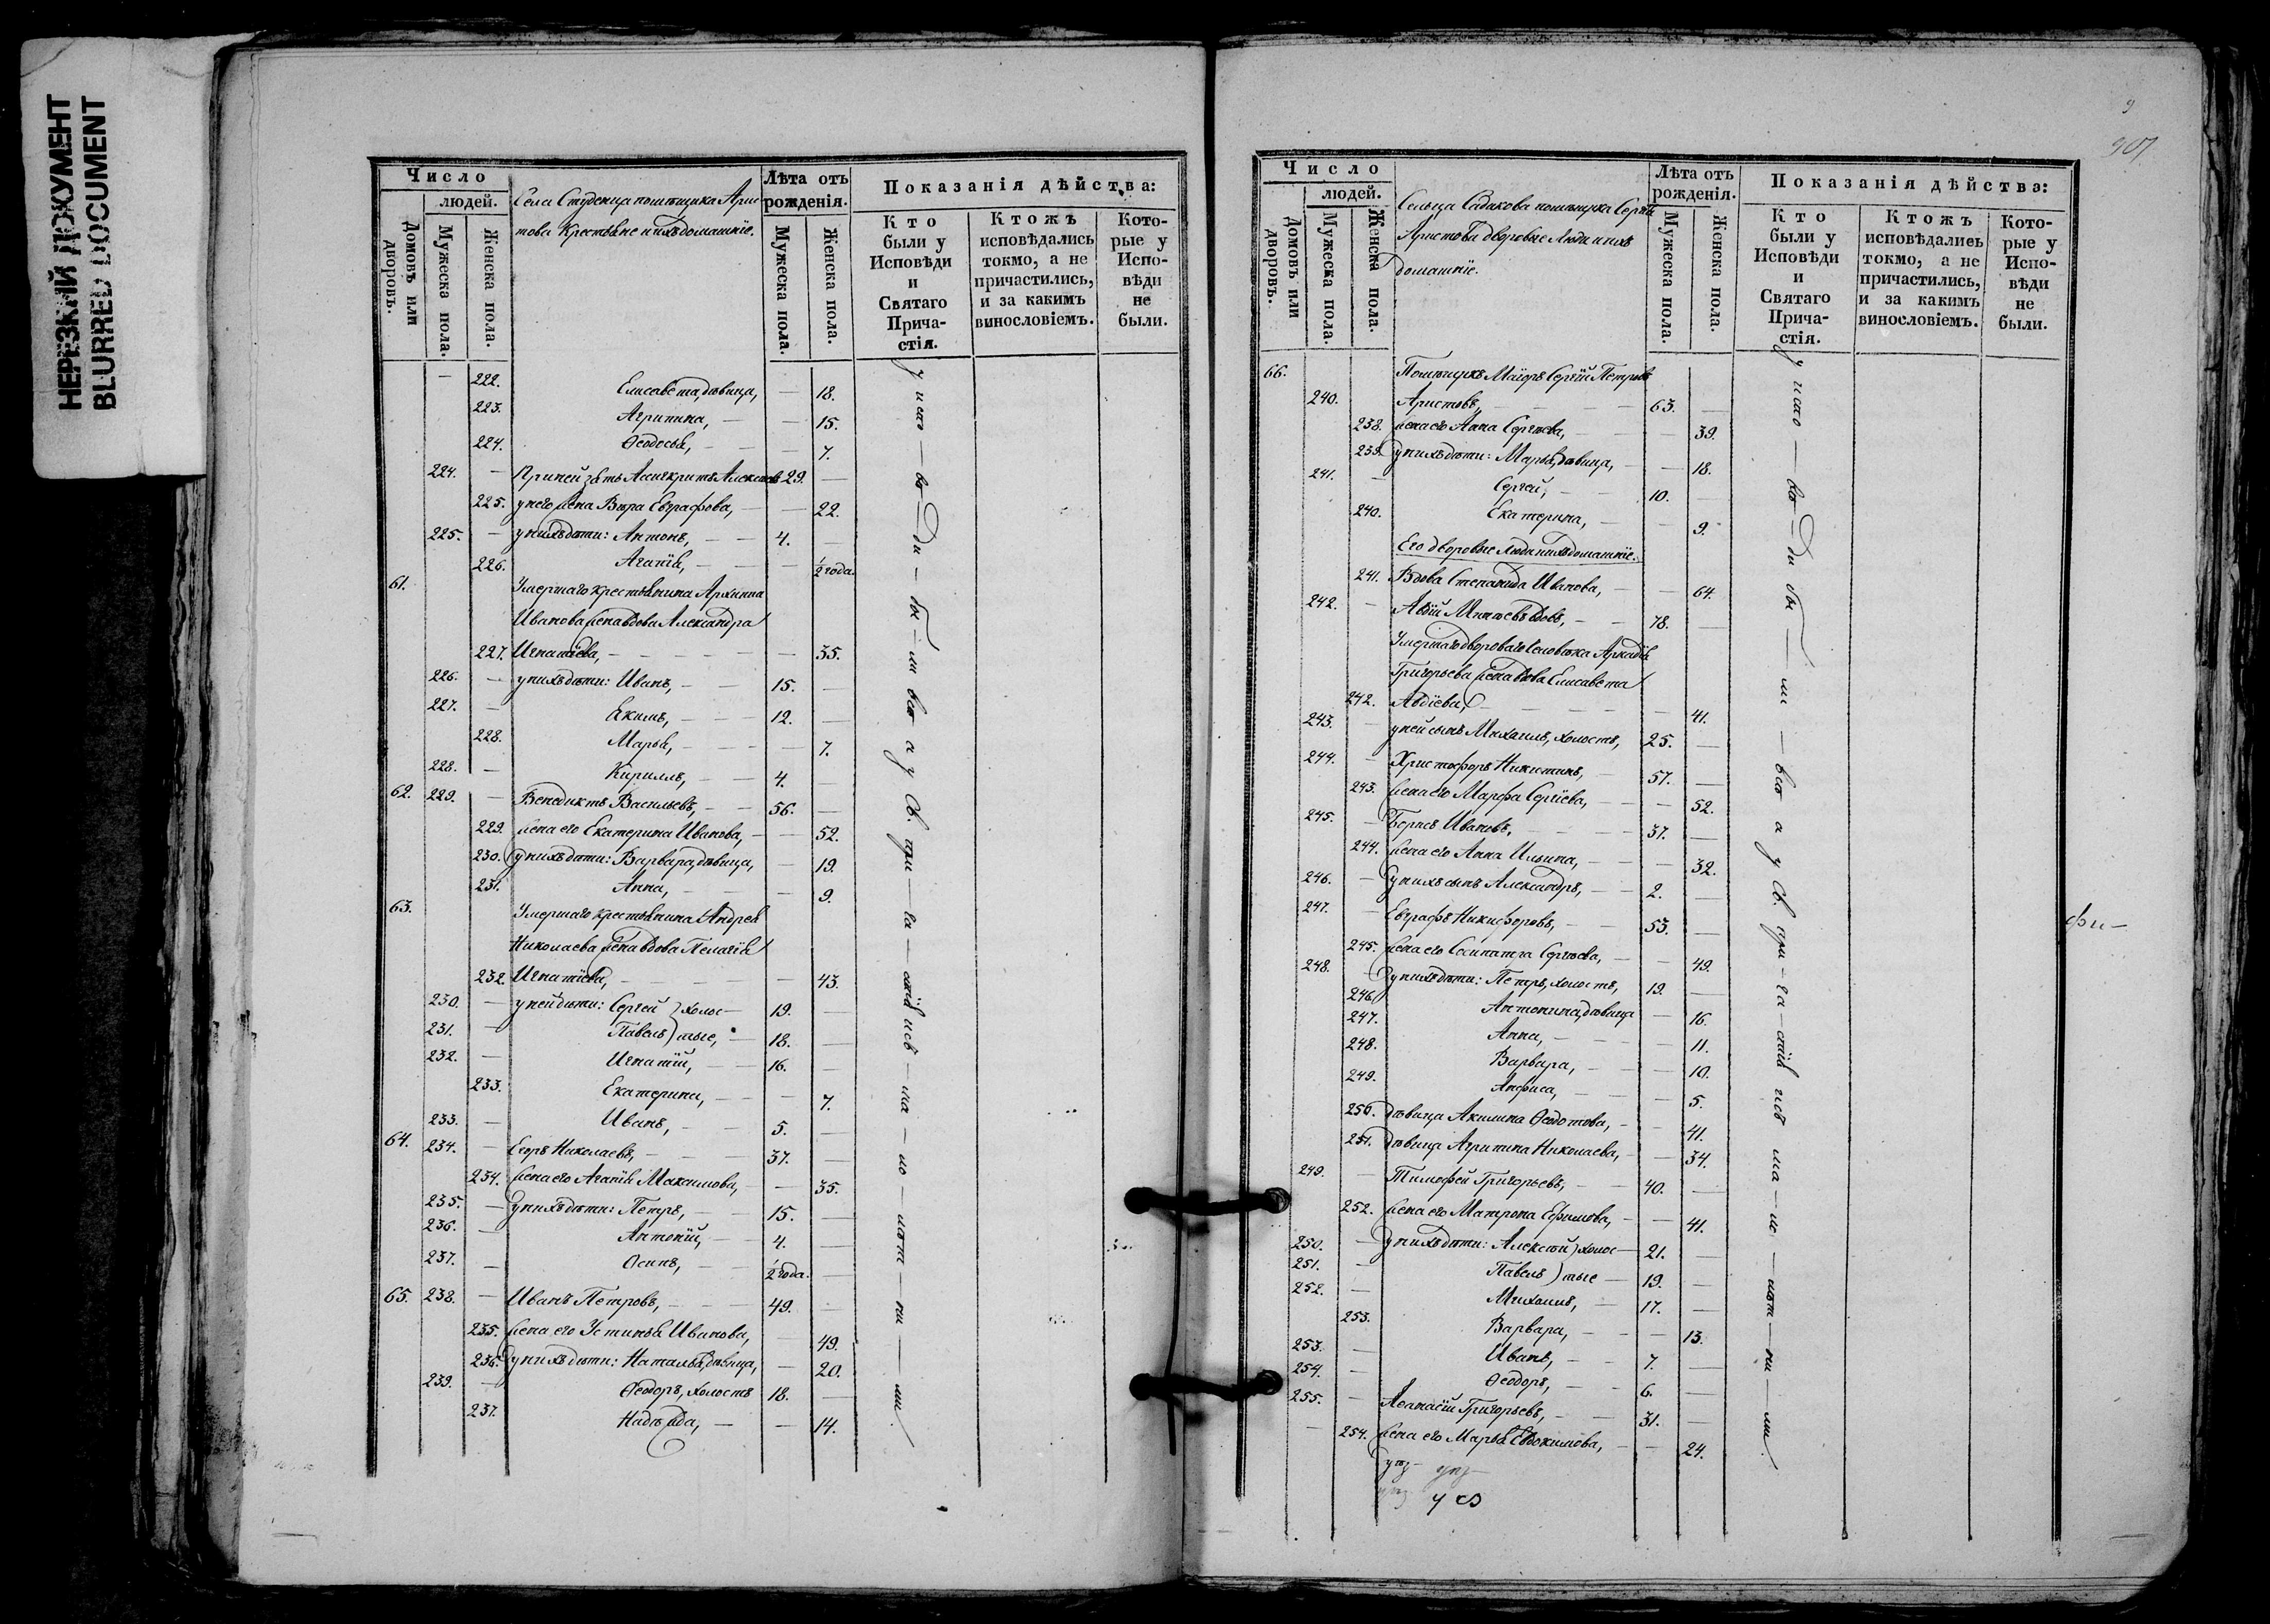 НЕРЕЗКИЙ ДОКУМЕНТ
BLURRED DOCUMENT
Число
людей.
Домовъ или дворовъ.
Мужеска пола.
Женска пола.
Села Студенца помѣщика Арис
това Крестьяне и ихъ домашніе.
Лѣта отъ рожденія.
Мужеска пола.
Женска пола.
Показанія дѣйства:
Кто были у Исповѣди и Святаго Причастія.
Ктожъ исповѣдались токмо, а не причастились, и за какимъ винословіемъ.
Которые у Исповѣди не были.
— 222. Елисавета, дѣвица, — 18.
223. Агрипина, — — 15.
224. Ѳеодосья, — — 7.
224. — Приней зять Асигкритъ Алексѣевъ 29. —
225. у него жена Вѣра Евграфова, — — 22.
225. — у нихъ дѣти: Антонъ, — — 4. —
226. Агапія, — — ½ года.
61. Умершаго крестьянина Архиппа
Иванова жена вдова Александра
227. Игнатіева, — — 35.
226. — у нихъ дѣти: Иванъ, — 15. —
227. — Екимъ, — 12. —
228. Марья, — — 7.
228. — Кириллъ, — — 4. —
62. 229. — Венедиктъ Васильевъ, — — 56. —
229. жена его Екатерина Иванова, — — 52.
230. у нихъ дѣти: Варвара, дѣвица, — 19.
231. Анна, — — 9.
63. Умершаго крестьянина Андрея
Николаева жена вдова Пелагія
232. Игнатіева, — — 43.
230. — у ней дѣти: Сергей } холос- 19. —
231. — Павелъ } тые, — 18. —
232. — Игнатій, — — 16. —
233. Екатерина, — — 7.
233. — Иванъ, — — 5. —
64. 234. — Егоръ Николаевъ, — — 37. —
234. жена его Агапія Максимова, — — 35.
235. — у нихъ дѣти: Петръ, — — 15. —
236. — Антоній, — 4. —
237. — Осипъ, — — ½ года. —
65. 238. — Иванъ Петровъ, — — 49. —
235. жена его Устинья Иванова, — 49.
236. у нихъ дѣти: Наталья, дѣвица, — 20.
239. — Ѳеодоръ, холостъ 18. —
237. Надежда, — — 14.
у испо — вѣ — ди — бы — ли всѣ а у Св. при — ча — стія
907
Число
людей.
Домовъ или дворовъ.
Мужеска пола.
Женска пола.
Сельца Садикова помѣщика Сергѣя
Аристова дворовые люди и ихъ
домашніе.
Лѣта отъ рожденія.
Мужеска пола.
Женска пола.
Показанія дѣйства:
Кто были у Исповѣди и Святаго Причастія.
Ктожъ исповѣдались токмо, а не причастились, и за какимъ винословіемъ.
Которые у Исповѣди не были.
66. Помѣщикъ Маіоръ Сергій Петровъ
240. Аристовъ, — 63. —
238. жена его Анна Сергѣева, — — 39.
239. у нихъ дѣти: Марья, дѣвица, — — 18.
241. — Сергей, — — 10. —
240. Екатерина, — — 9.
Его дворовые люди и ихъ домашніе.
241. Вдова Степанида Иванова, — — 64.
242. — Авдій Минѣевъ вдовъ, — — 78. —
Умершаго двороваго человѣка Аркадія
Григорьева жена вдова Елисавета
242. Авдіева, — — 41.
243. — у ней сынъ Михаилъ, холостъ, 25. —
244. — Христофоръ Никитинъ, — 57. —
243. жена его Марфа Сергіева, — — 52.
245. — Борисъ Ивановъ, — — 37. —
244. жена его Анна Ильина, — — 32.
246. — у нихъ сынъ Александръ, — — 2. —
247. — Евграфъ Никифоровъ, — — 53. —
245. жена его Сосипатра Сергѣева, — — 49.
248. — у нихъ дѣти: Петръ, холостъ, 19. —
246. Антонина, дѣвица — 16.
247. Анна, — — 11.
248. Варвара, — — 10.
249. Анфиса, — — 5.
250. дѣвица Акилина Ѳедотова, — — 41.
251. дѣвица Агрипина Николаева, — — 34.
249. — Тимофей Григорьевъ, — — 40. —
252. жена его Матрона Ефимова, — — 41.
250. — у нихъ дѣти: Алексѣй } холос- 21. —
251. — Павелъ } тые — 19. —
252. — Михаилъ, — 17. —
253. Варвара, — — 13.
253. — Иванъ, — — 7. —
254. — Ѳеодоръ, — — 6. —
255. — Аѳанасій Григорьевъ, — — 31. —
— 254. жена его Марья Евдокимова, — — 24.
у испо — вѣ — ди бы — ли — всѣ а у Св. при — ча — стія